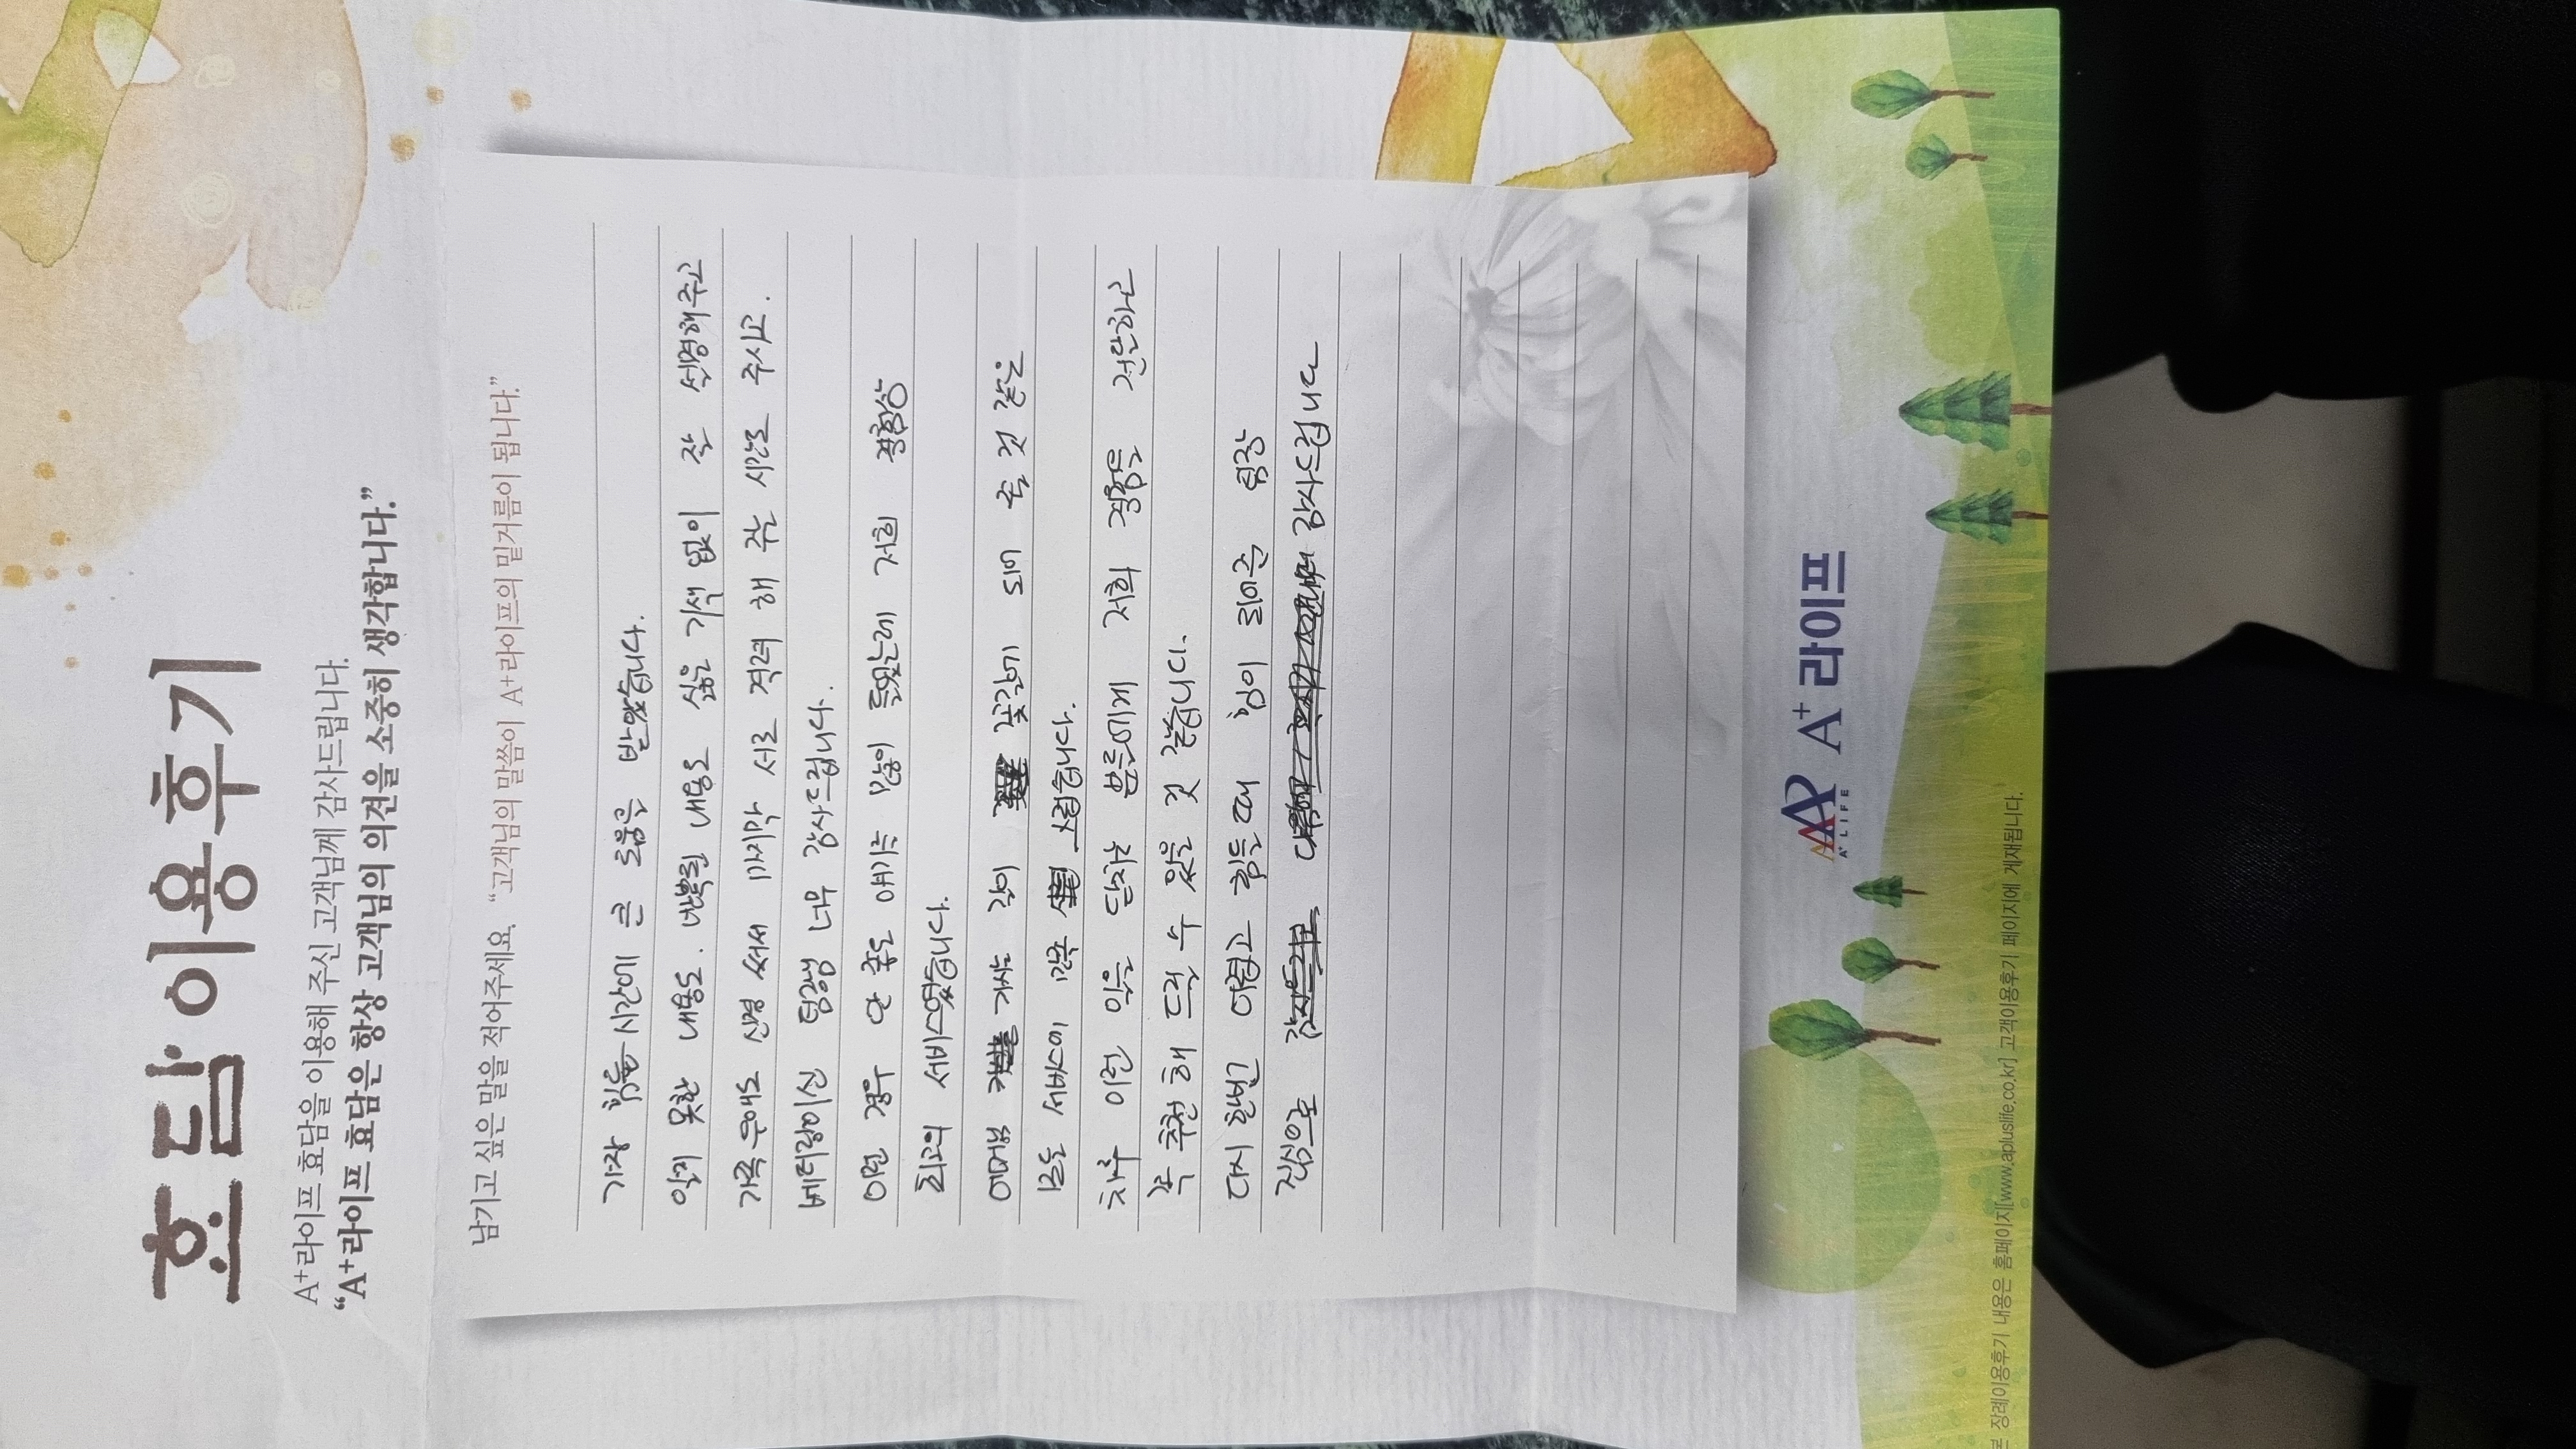 효담 이용후기
A+라이프 효담을 이용해 주신 고객님께 감사드립니다.
"A+라이프 효담은 항상 고객님의 의견을 소중히 생각합니다."
남기고 싶은 말을 적어주세요. "고객님의 말씀이 A+라이프의 밑거름이 됩니다."
가장 힘들 시간에 큰 도움은 받았습니다.
알지 못한 내용도. 반복된 내용도 싫은 기색 없이 잘 설명해주고
가족우애도 신경 써서 마지막 서로 격려 해 주는 시간도 주시고.
베터랑이신 팀장님 너무 감사드립니다.
이런 경우 안 좋은 얘기는 많이 들었는데 저희
최고의 서비스였습니다.
어머님 가시는 길이 꽃길이 되어 준 것 같은
모든 서비스에 만족 스럽습니다.
차후 이런 일을 당하는 분들에게 저희 경험을 전달하고
꼭 추천 해 드릴 수 있을 것 같습니다.
다시 한번 어렵고 힘들때 힘이 되어준 팀장
진심으로 감사드립니다
A+ LIFE
A+ 라이프
본 장례이용후기 내용은 홈페이지[www.apluslife.co.kr] 고객이용후기 페이지에 게재됩니다.